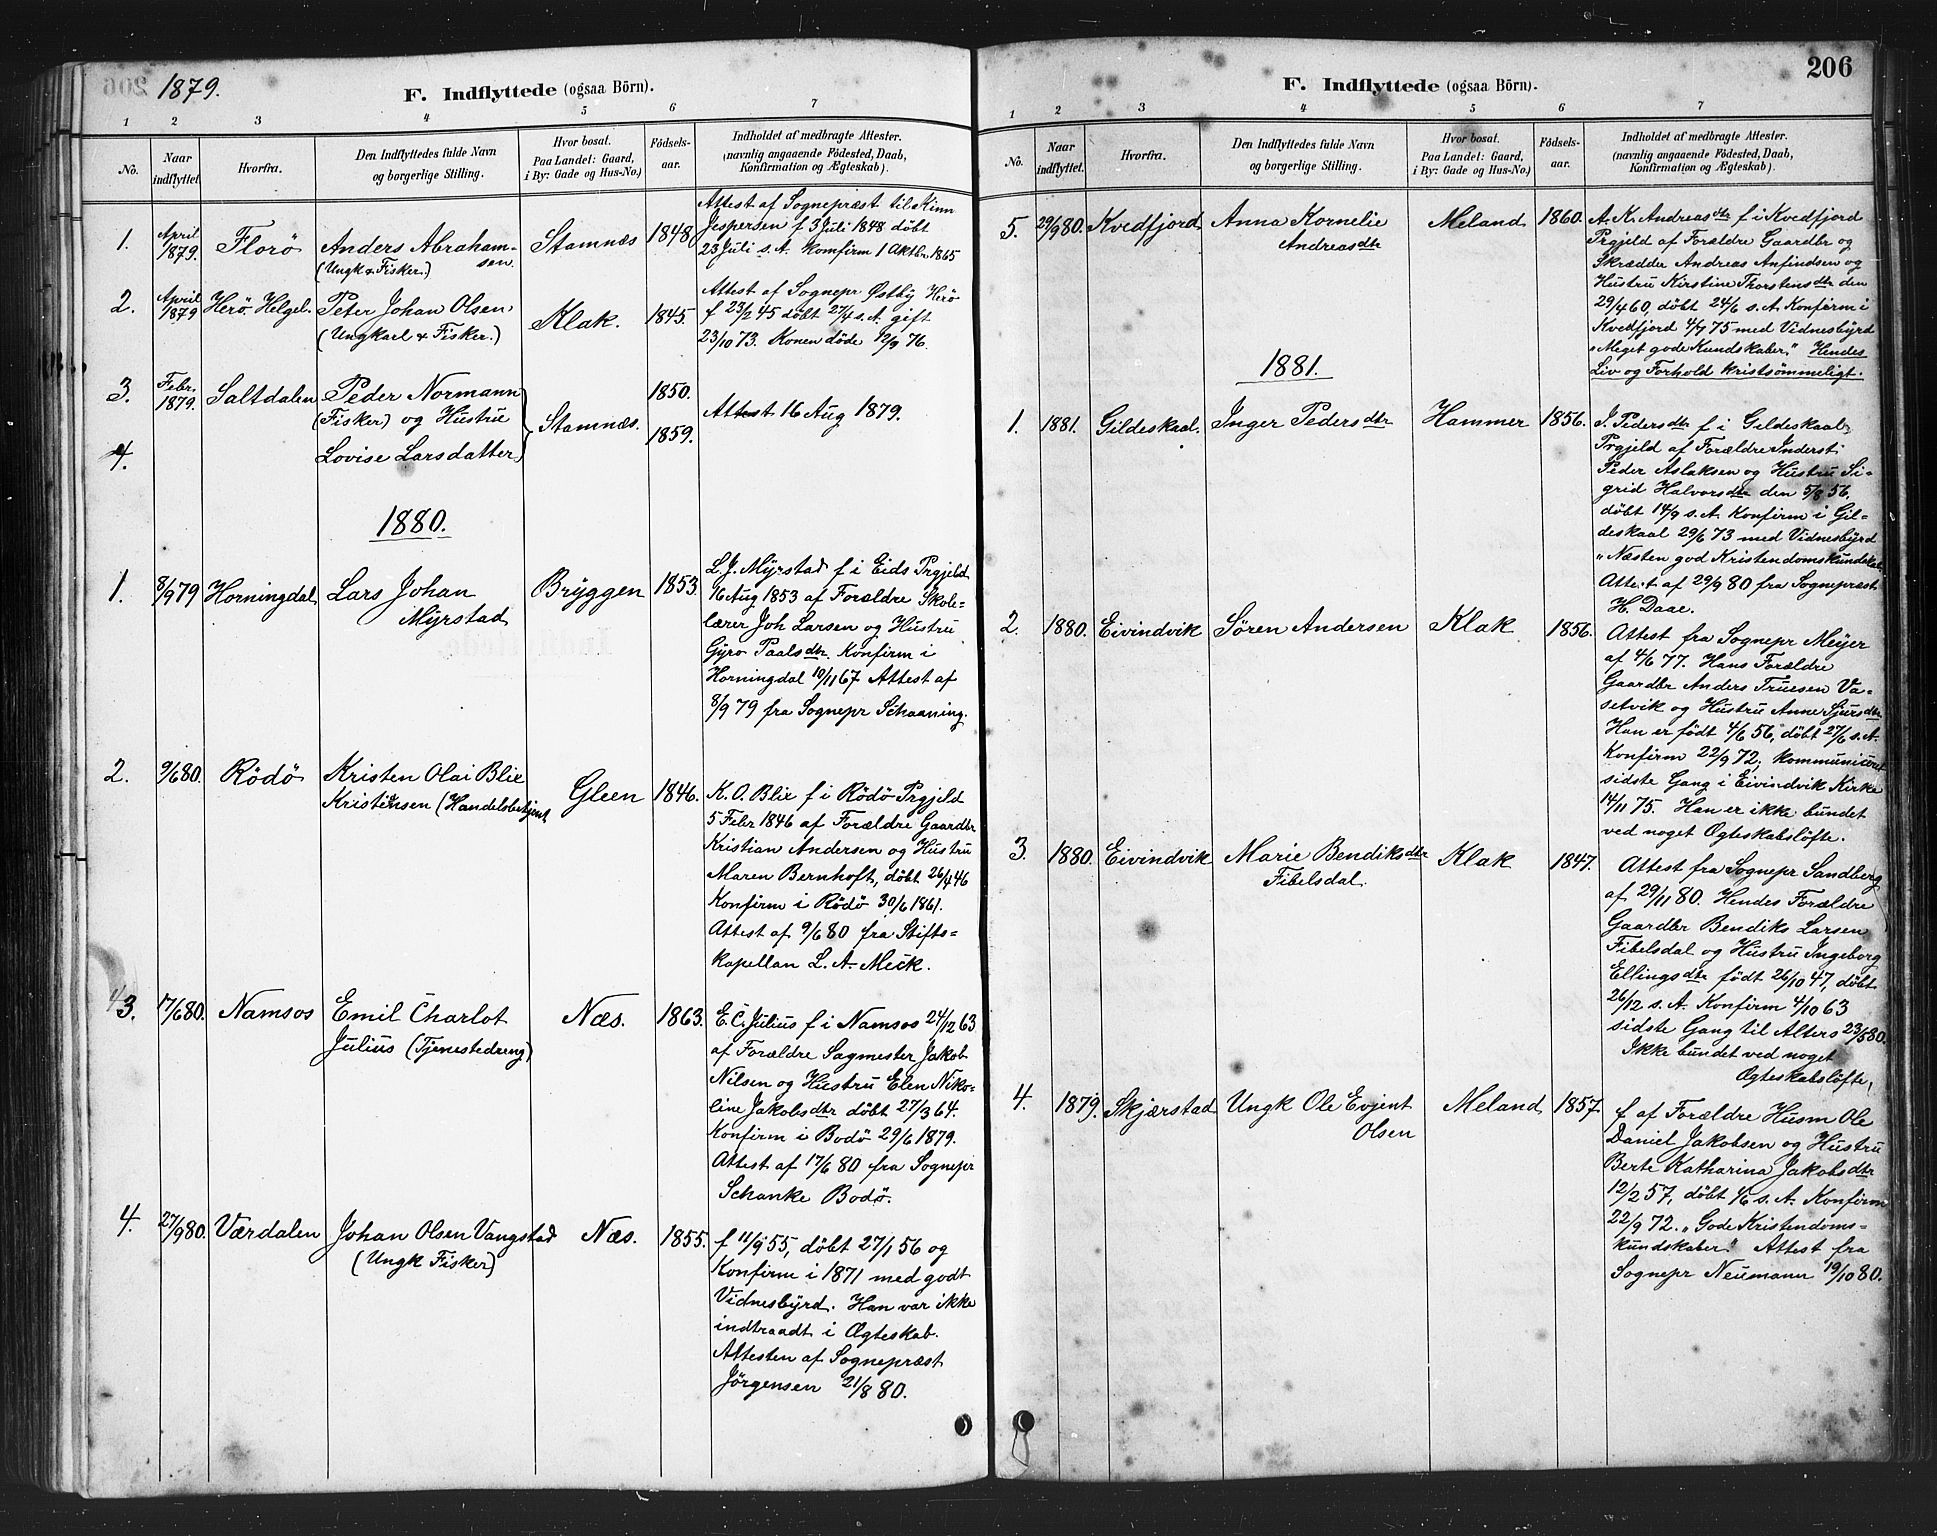 1879.
F. Indflyttede (ogsaa Börn).
1 2 3 4 5 6 7
No.
Naar
indflyttet.
Hvorfra.
Den Indflyttedes fulde Navn
og borgerlige Stilling.
Hvor bosat.
Paa Landet: Gaard,
i By: Gade og Hus-No.)
Födsels-
aar.
Indholdet af medbragte Attester.
(navnlig angaaende Födested, Daab,
Konfirmation og Ægteskab).
1. April 1879. Florö Anders Abraham-
sen.
(Ungk & Fisker.)
Stamnæs 1848
Attest af Sognepræst til Kinn
Jespersen f 3 Juli 1848 døbt
23 Juli s. A. Komfirm 1 Aktbr. 1865
2. April 1879 Herö. Helgel. Peter Johan Olsen.
(Ungkarl & Fisker.)
Klak. 1845.
Attest af Sognepr Østby Herö
f 23/2 45 döbt 27/4 s. A. gift
23/10 73. Konen döde 12/9 76.
3. Febr. 1879. Saltdalen Peder Normann
(Fisker) og Hustru
4. Lovise Larsdatter
Stamnæs. 1850.
1859.
Attest 16 Aug 1879.
1880.
1. 8/9 79 Horningdal Lars Johan
Myrstad
Bryggen 1853.
L. J. Myrstad f i Eids Prgjeld
16 Aug 1853 af Forældre Skole-
lærer Joh Larsen og Hustru
Gyro Paalsdtr. Konfirm i
Horningdal 10/11 67 Attest af
8/9 79 fra Sognepr Schaaning.
2. 9/6 80. Rödö Kristen Olai Blix
Kristensen (Handelsbetjent
Gleen 1846.
K. O. Blix f i Rödö Prgjeld
5 Febr 1846 af Forældre Gaardbr
Kristian Andersen og Hustru
Maren Bernhoft, døbt 26/4 46
Konfirm i Rödö 30/6 1861.
Attest af 9/6 80 fra Stifts-
kapellan L. A. Meck.
3. 17/6 80. Namsos Emil Charlot
Julius (Tjenestedreng)
Næs. 1863.
E. C. Julius f i Namsos 24/12 63
af Forældre Sagmester Jakob
Nilsen og Hustru Elen Niko-
line Jakobsdtr døbt 27/3 64.
Konfirm i Bodö 29/6 1879.
Attest af 17/6 80 fra Sognepr
Schanke Bodö.
4. 27/9 80. Værdalen Johan Olsen Vangstad
(Ungk Fisker)
Næs. 1855.
f 11/9 55, döbt 27/1 56 og
Konfirm i 1871 med godt
Vidnesbyrd. Han var ikke
indtraadt i Ægteskab.
Attesten af Sognepræst
Jörgensen 21/8 80.
206
F. Indflyttede (ogsaa Börn).
1 2 3 4 5 6 7
No.
Naar
indflyttet.
Hvorfra.
Den Indflyttedes fulde Navn
og borgerlige Stilling.
Hvor bosat.
Paa Landet: Gaard,
i By: Gade og Hus-No.)
Födsels-
aar.
Indholdet af medbragte Attester.
(navnlig angaaende Födested, Daab,
Konfirmation og Ægteskab).
5. 29/9 80. Kvedfjord Anna Kornelie
Andreasdtr
Meland 1860.
A. K. Andreasdtr f i Kvedfjord
Prgjeld af Forældre Gaardbr og
Skrædder Andreas Anfindsen og
Hustru Kirstine Thorstensdtr den
29/4 60, döbt 24/6 s. A. Konfirm i
Kvedfjord 4/7 75 med Vidnesbyrd
„Meget gode Kundskaber." Hendes
Liv og Forhold kristsömmeligt.
1881.
1. 1881. Gildeskaal. Inger Pedersdtr Hammer 1856.
I. Pedersdtr f i Gildeskaal
Prgjeld af Forældre Inderst
Peder Aslaksen og Hustru Si-
grid Halvorsdtr den 5/8 56,
döbt 14/9 s. A. Konfirm i Gil-
deskaal 29/6 73 med Vidnesbyrd
„Næsten god Kristendomskundskab.
Attest af 29/9 80 fra Sognepræst
H. Daae.
2. 1880. Eivindvik Sören Andersen Klak 1856.
Attest fra Sognepr Meyer
af 4/6 77. Hans Forældre
Gaardbr Anders Truesen Va-
setvik og Hustru Anne Sjursdtr
Han er födt 4/6 56, döbt 27/6 s. A.
Konfirm 22/9 72, kommuniceret
sidste Gang i Eivindvik Kirke
14/11 75. Han er ikke bundet
ved noget Ægteskabslöfte.
3. 1880. Eivindvik Marie Bendiksdtr
Fibelsdal.
Klak 1847.
Attest fra Sognepr Sandberg
af 29/11 80. Hendes Forældre
Gaardbr Bendiks Larsen
Fibelsdal og Hustru Ingeborg
Ellingsdtr født 26/10 47, døbt
26/12 s. A. Konfirm 4/10 63
sidste Gang til Alters 23/5 80.
Ikke bundet ved noget
Ægteskabslöfte,
4. 1879. Skjærstad Ungk Ole Evjent
Olsen
Meland 1857
f af Forældre Husm Ole
Daniel Jakobsen og Hustru
Berte Katharina Jakobsdtr
12/2 57, döbt 1/6 s. A. Konfirm
22/9 72. „Gode Kristendoms-
kundskaber." Attest fra
Sognepr Neumann 19/10 80.